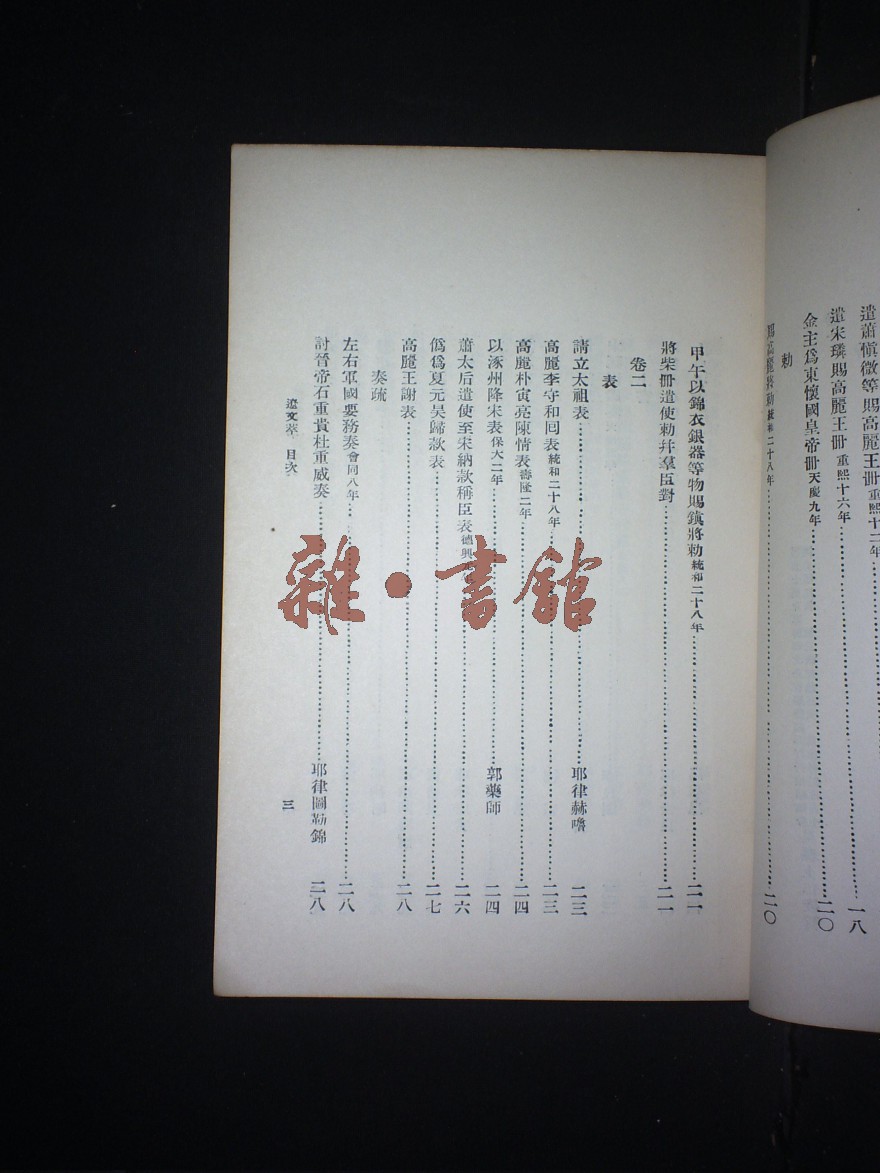 遣蕭愼微等賜高麗王冊重熙十二年……一八
遣宋璘賜高麗王冊重熙十六年……
金主爲東懷國皇帝冊天慶九年……二〇
勅
賜高麗䇿勅統和二十八年……二〇
甲午以錦衣銀器等物賜鎭將勅統和二十八年……二一
將柴冊遣使勅幷羣臣對……二一
卷二
表
請立太祖表……耶律赫嚕 二三
高麗李守和回表統和二十八年……二三
高麗朴寅亮陳情表壽隆二年……二四
以涿州降宋表保大二年……郭藥師 二四
蕭太后遣使至宋納款稱臣表德興……二六
僞爲夏元吴歸款表……二七
高麗王謝表……二八
奏疏
左右軍國要務奏會同八年……二八
討晉帝石重貴杜重威奏……耶律圖勒錦 二八
遼文萃 目次
三
雜·書館